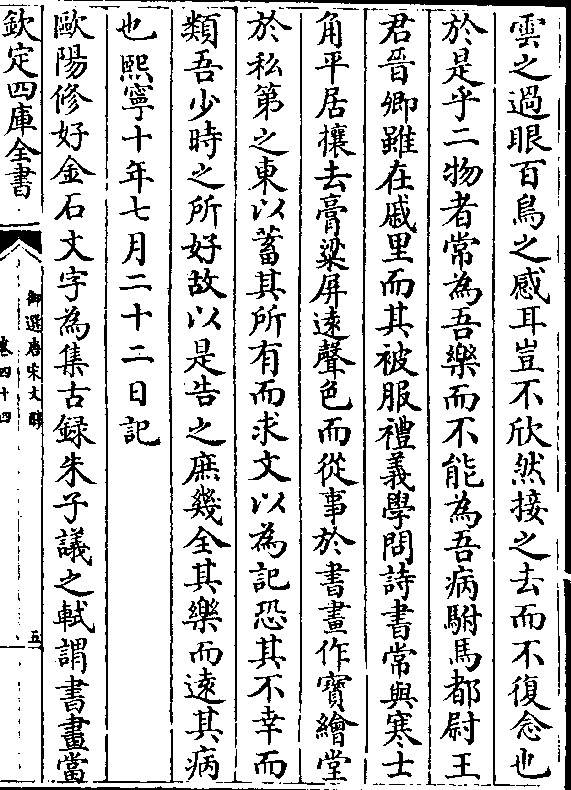 雲之過眼百鳥之感耳豈不欣然接之去而不復念也
於是乎二物者常為吾樂而不能為吾病駙馬都尉王
君晉卿雖在戚里而其被服禮義學問詩書常與寒士
角平居攘去膏粱屏遠聲色而從事於書畫作寳繪堂
於私第之東以蓄其所有而求文以為記恐其不幸而
類吾少時之所好故以是告之庶幾全其樂而遠其病
也熙寧十年七月二十二日記
歐陽修好金石文字為集古録朱子議之軾謂書畫當
欽定四庫全書
御選唐宋文醇
卷四十四
五